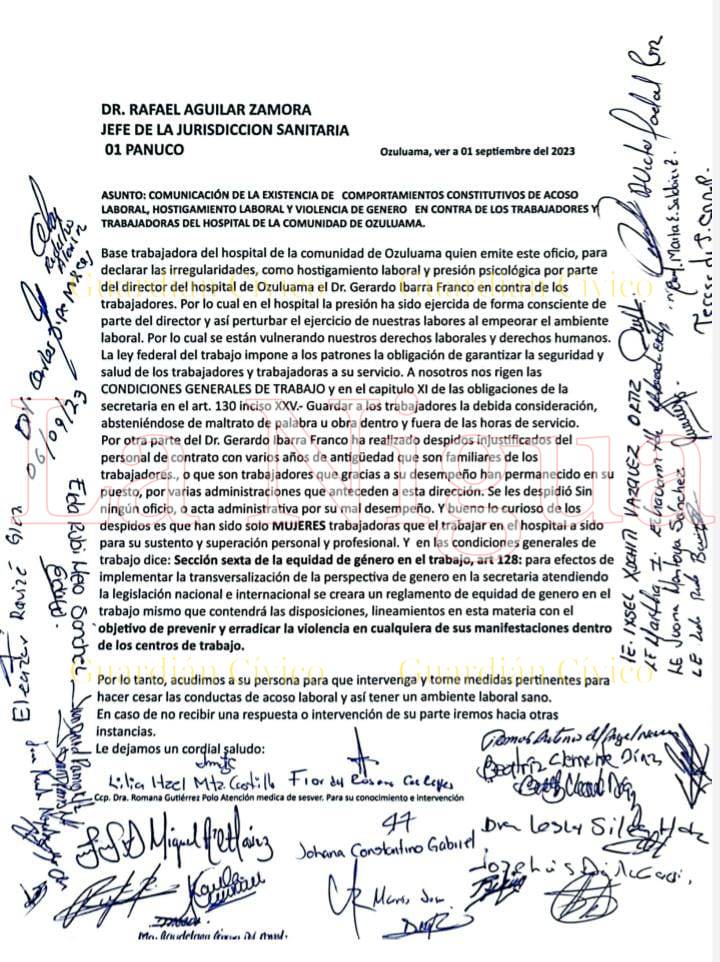 DR. RAFAEL AGUILAR ZAMORA
JEFE DE LA JURISDICCION SANITARIA
01 PANUCO
Ozuluama, ver a 01 septiembre del 2023
ASUNTO: COMUNICACIÓN DE LA EXISTENCIA DE COMPORTAMIENTOS CONSTITUTIVOS DE ACOSO
LABORAL, HOSTIGAMIENTO LABORAL Y VIOLENCIA DE GENERO EN CONTRA DE LOS TRABAJADORES Y
TRABAJADORAS DEL HOSPITAL DE LA COMUNIDAD DE OZULUAMA.
Base trabajadora del hospital de la comunidad de Ozuluama quien emite este oficio, para
declarar las irregularidades, como hostigamiento laboral y presión psicológica por parte
del director del hospital de Ozuluama el Dr. Gerardo Ibarra Franco en contra de los
trabajadores. Por lo cual en el hospital la presión ha sido ejercida de forma consciente de
parte del director y así perturbar el ejercicio de nuestras labores al empeorar el ambiente
laboral. Por lo cual se están vulnerando nuestros derechos laborales y derechos humanos.
La ley federal del trabajo impone a los patrones la obligación de garantizar la seguridad y
salud de los trabajadores y trabajadoras a su servicio. A nosotros nos rigen las
CONDICIONES GENERALES DE TRABAJO y en el capitulo XI de las obligaciones de la
secretaria en el art. 130 inciso XXV.- Guardar a los trabajadores la debida consideración,
absteniéndose de maltrato de palabra u obra dentro y fuera de las horas de servicio.
Por otra parte del Dr. Gerardo Ibarra Franco ha realizado despidos injustificados del
personal de contrato con varios años de antigüedad que son familiares de los
trabajadores., o que son trabajadores que gracias a su desempeño han permanecido en su
puesto, por varias administraciones que anteceden a esta dirección. Se les despidió Sin
ningún oficio, o acta administrativa por su mal desempeño. Y bueno lo curioso de los
despidos es que han sido solo MUJERES trabajadoras que el trabajar en el hospital a sido
para su sustento y superación personal y profesional. Y en las condiciones generales de
trabajo dice: Sección sexta de la equidad de género en el trabajo, art 128: para efectos de
implementar la transversalización de la perspectiva de genero en la secretaria atendiendo
la legislación nacional e internacional se creara un reglamento de equidad de género en el
trabajo mismo que contendrá las disposiciones, lineamientos en esta materia con el
objetivo de prevenir y erradicar la violencia en cualquiera de sus manifestaciones dentro
de los centros de trabajo.
Por lo tanto, acudimos a su persona para que intervenga y tome medidas pertinentes para
hacer cesar las conductas de acoso laboral y así tener un ambiente laboral sano.
En caso de no recibir una respuesta o intervención de su parte iremos hacia otras
instancias.
Le dejamos un cordial saludo:
Lilia Itzel Mtz Castillo
Flor
Ccp. Dra. Romana Gutiérrez Polo Atención medica de sesver. Para su conocimiento e intervención
Beatriz Clemente Díaz
Miguel
Johana Constantino Gabriel
Dra Lesly
Jose Luis
Dr. Carlos Díaz
06/09/23
Eleazar
Eda Rubi
IE. IXSEL XOCHITL VAZQUEZ ORTIZ
LE Martha I.
LE Juana Montoya Sánchez
La Nigua
Guardián Cívico
Guardián Cívico
Guardián Cívico
Guardián Cívico